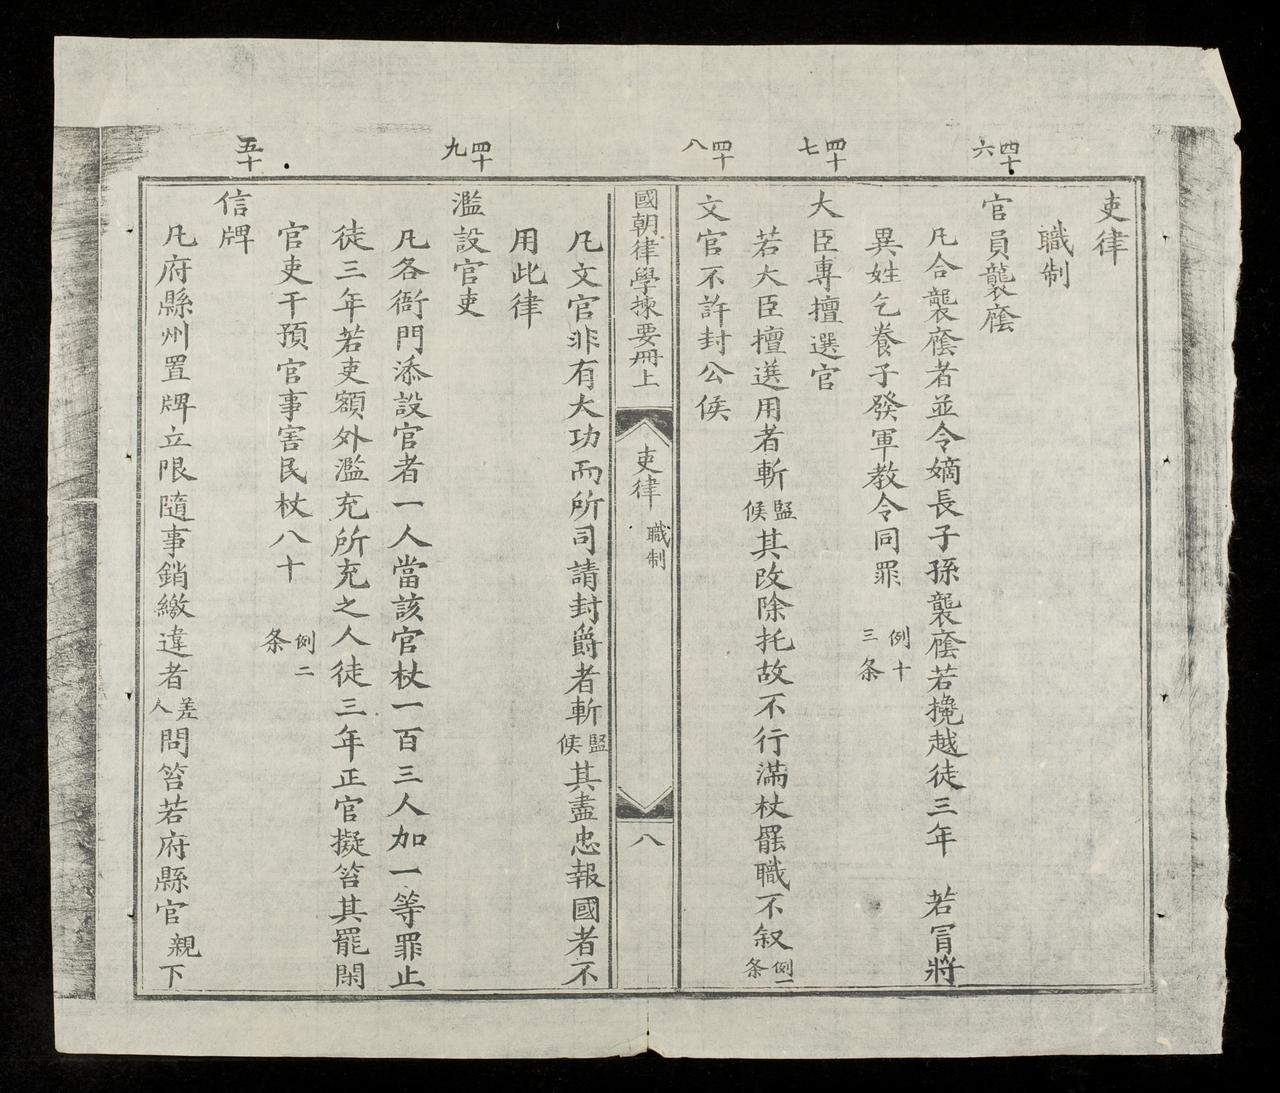 吏律
職制
四十六
官員襲廕
凡合襲廕者並令嫡長子孫襲廕若攙越徒三年 若冐將
異姓乞養子發軍教令同罪 例十三条
四十七
大臣專擅選官
若大臣擅选用者斬監候其改除托故不行滿杖罷職不叙例一条
四十八
文官不許封公侯
國朝律學揀要冊上 吏律 職制 八
凡文官非有大功而所司請封爵者斬監候其盡忠報國者不
用此律
四十九
濫設官吏
凡各衙門添設官者一人當該官杖一百三人加一等罪止
徒三年若吏額外濫充所充之人徒三年正官擬笞其罷閑
官吏干預官事害民杖八十 例二条
五十
信牌
凡府縣州置牌立限隨事銷繳違者差人問笞若府縣官親下